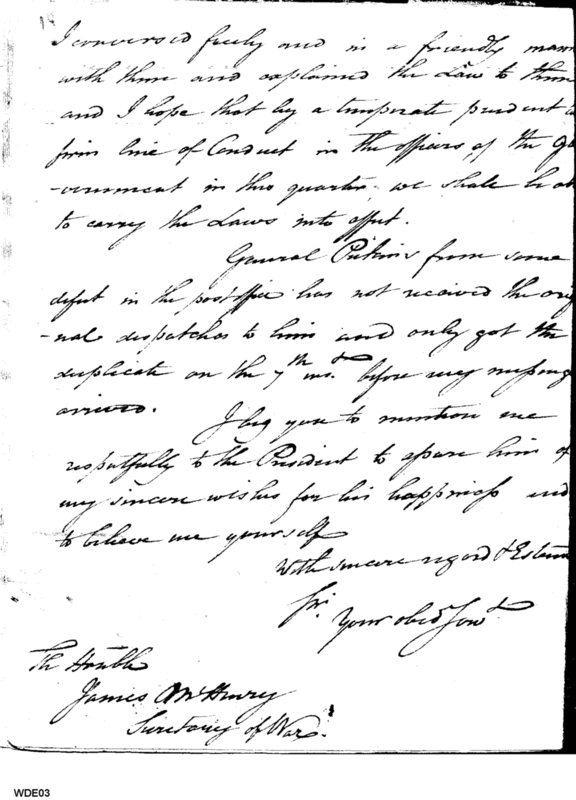 I conversed freely and in a friendly mann
with them and explained the Law to them
and I hope that by a temperate prudent &
firm line of Conduct in the officers of the Go
-vernment in this quarter we shall be ab
to carry the Laws into effect.
General Pickens from some
defect in the post office has not received the orig
-nal dispatches to him and only got the
duplicate on the 7th inst. before my messeng
arrived.
I beg you to mention me
respectfully to the President to assure him of
my sincere wishes for his happiness and
to believe me yourself
With sincere regard & Esteem
Sir
Your obedt Servt
The Honble
James McHenry
Secretary of War.
WDE03